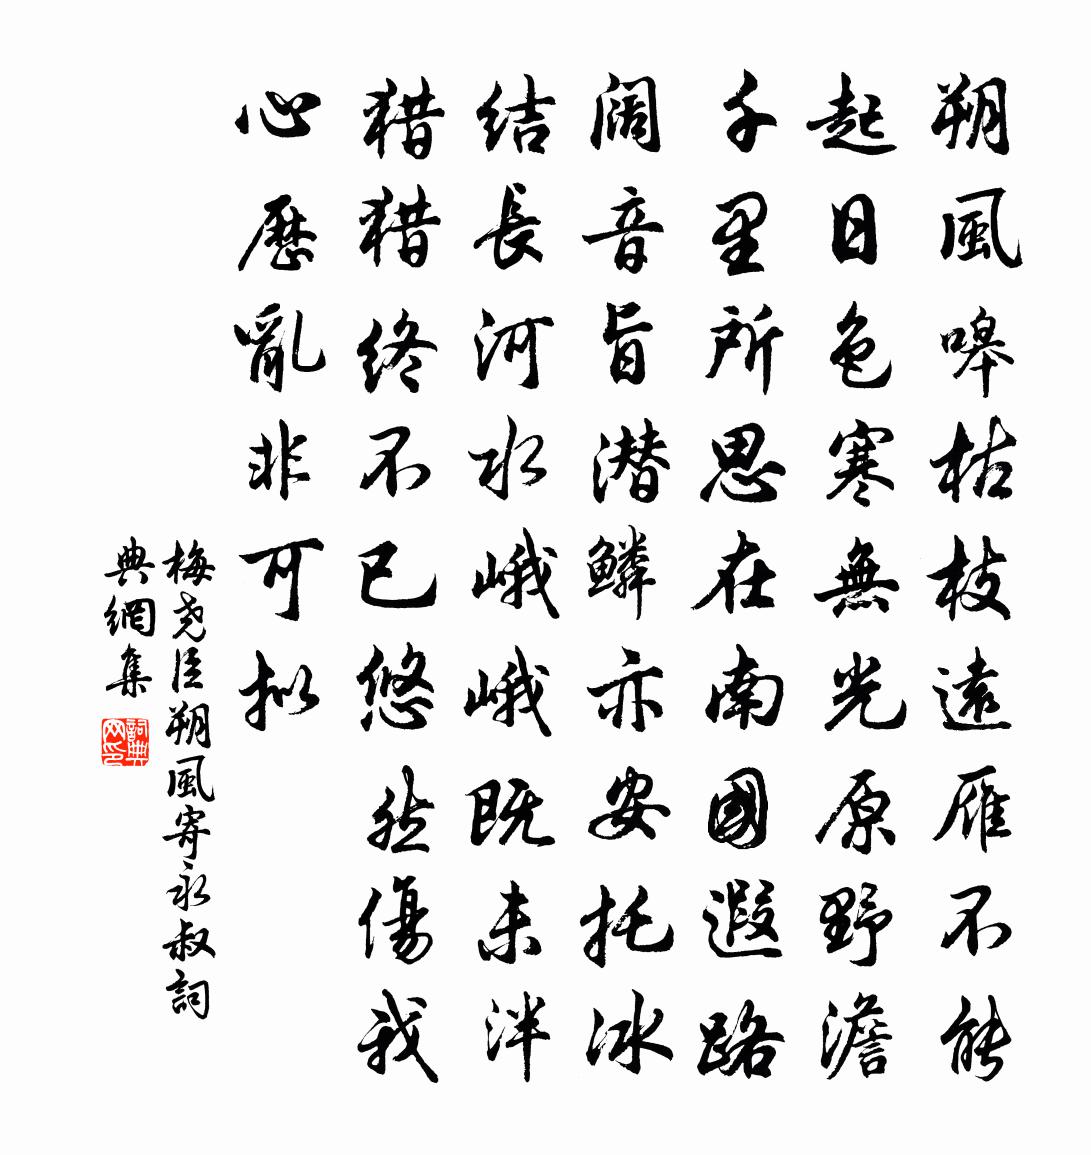 朔風嗥枯枝遠雁不能
起日色寒無光原野澹
千里所思在南國遐路
闊音旨潜鱗亦安托冰
結長河水峨峨既未泮
猎猎終不已悠然傷我
心歷亂非可拟
梅尧臣朔風寄永叔詞
典網集
詞典
网印